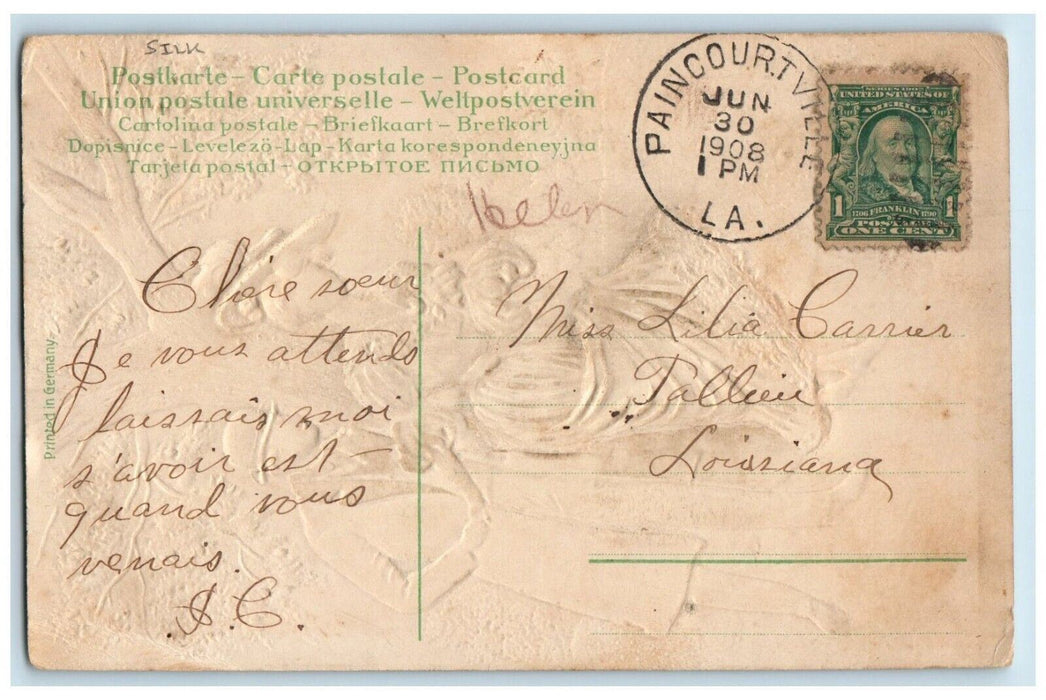 SILK
Postkarte – Carte postale – Postcard
Union postale universelle – Weltpostverein
Cartolina postale – Briefkaart – Brefkort
Dopisnice – Levelező-Lap – Karta korespondencyjna
Tarjeta postal – ОТКРЫТОЕ ПИСЬМО
PAINCOURTVILLE
JUN
30
1908
1 PM
LA.
SERIES 1902
UNITED STATES OF
AMERICA
1 1706 FRANKLIN 1790 1
POSTAGE
ONE CENT
Helen
Chère sœur
Je vous attends
laissais moi
s'avoir est –
quand vous
venais.
J. C.
Miss Lilia Carrier
Tallieu
Loisiana
Printed in Germany